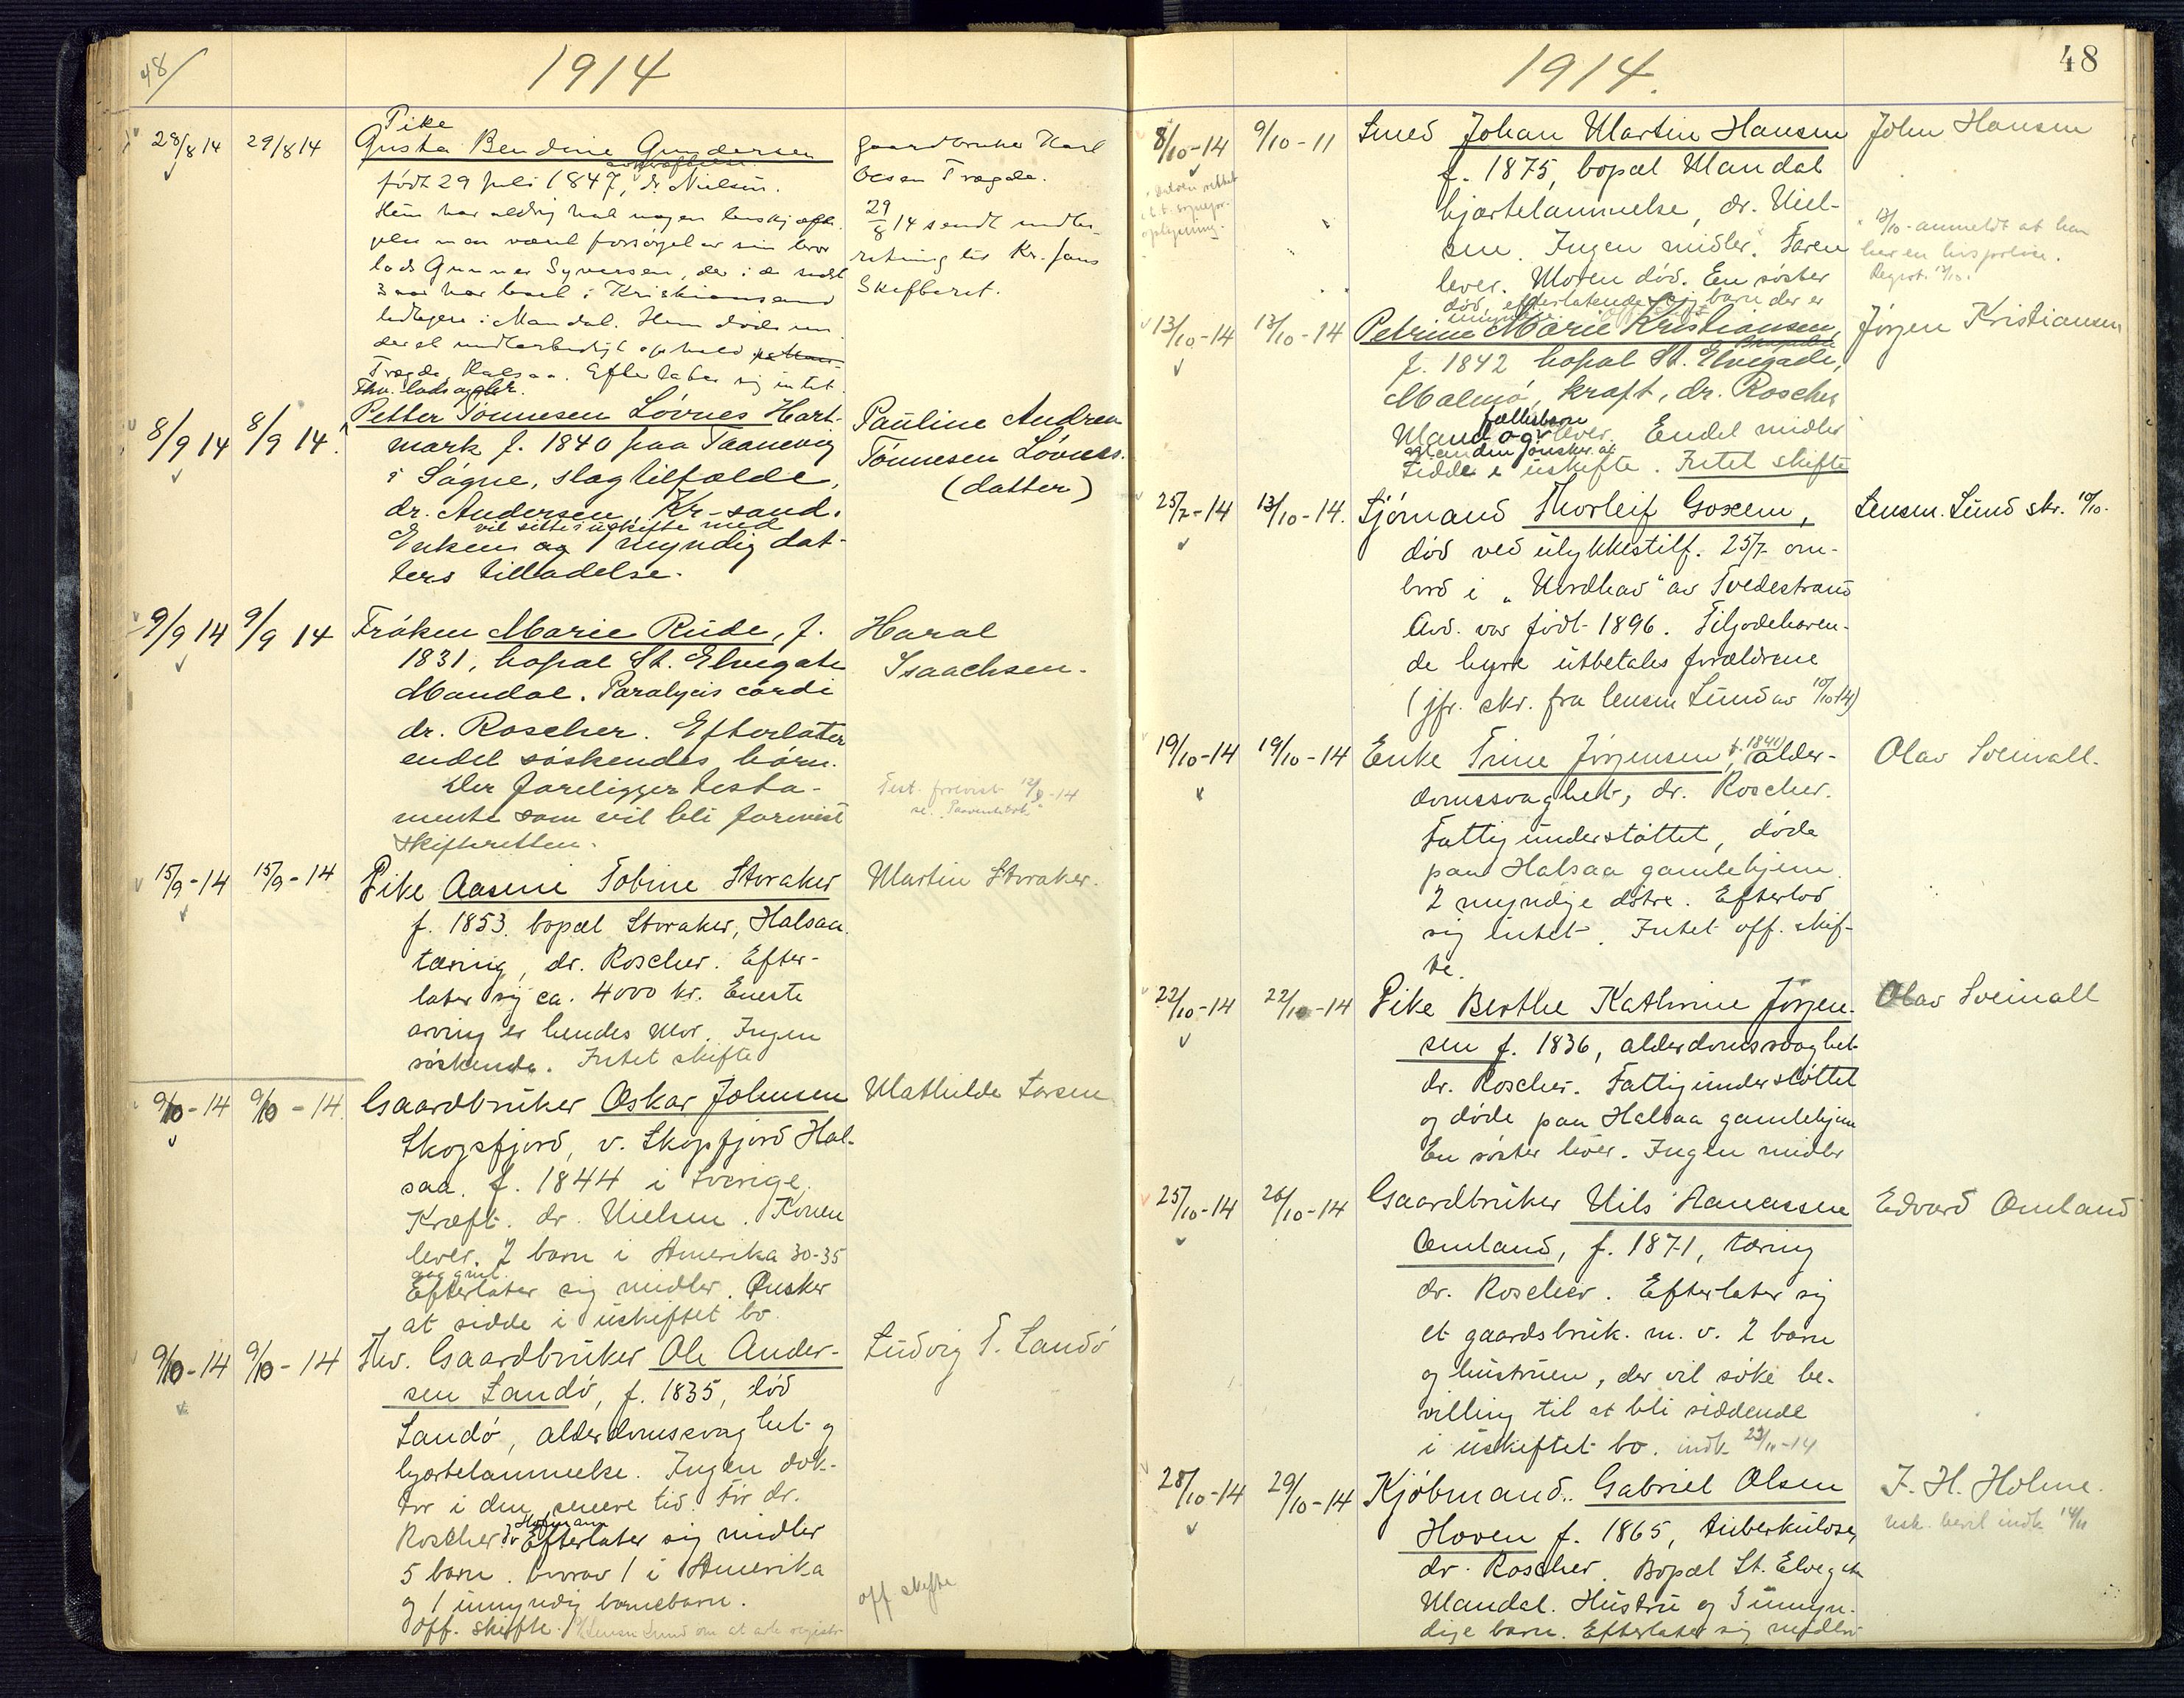 48/
1914
28/8 14 29/8 14
Pike
Gusta Bendine Gundersen
født 29 juli 1847, dr. Nielsen.
gaardbruker Karl
Olsen Tregde.
29/8 14 sendt
Kr.sans
Skifteret.
lods Gunner Syversen, der i de sidst
3 aar har boet i Kristiansand
tidligere i Mandal. Hun døde
Tregde, Halsaa. Efterlater sig intet.
Fhv. lodsopsyn
8/9 14 8/9 14
Petter Tønnesen Løvnes Hart-
mark f. 1840 paa Taanevig
i Søgne, slagtilfælde,
dr. Andersen, Kr-sand.
vil sitte i uskifte med
Enken og 1 myndig dat-
ters tilladelse.
Pauline Andrea
Tønnesen Løvnes.
(datter)
9/9 14 9/9 14
Frøken Marie Rude, f.
1831, bopæl St. Elvegate
Mandal. Paralysis cordi
dr. Roscher. Efterlater
endel søskendes børn.
Der foreligger testa-
mente som vil bli forevist
skifteretten.
Haral
Isaachsen.
Test. forevist
15/9-14 15/9-14
Pike Aasene Tobine Storaker
f. 1853. bopæl Storaker, Halsaa.
tæring, dr. Roscher. Efter-
later sig ca. 4000 kr. Eneste
arving er hendes mor. Ingen
søskende. Intet skifte
Martin Storaker.
9/10-14 9/10-14
Gaardbruker Oskar Johnsen
Skogsfjord, v. Skogsfjord Hal-
saa. f. 1844 i Sverige.
Kræft. dr. Nielsen. Konen
lever. 2 barn i Amerika 30-35
aar gml.
Efterlater sig midler. Ønsker
at sidde i uskiftet bo.
Mathilde Larsen
9/10-14 9/10-14
Fhv. Gaardbruker Ole Ander-
sen Landø, f. 1835, død
Landø, alderdomssvaghet og
hjertelammelse. Ingen dok-
tor i den senere tid. Før dr.
Hofmann
Roscher Efterlater sig midler
5 barn. hvorav 1 i Amerika
og 1 umyndig barnebarn.
Off. skifte.
Ludvig T. Landø
off skifte
1914.
48
8/10-14 9/10-11
Smed Johan Martin Hansen
f. 1875, bopæl Mandal
hjærtelammelse, dr. Niel-
sen. Ingen midler. Faren
lever. Moren død. En søster
død, efterlatende sig barn der er
umyndige
John Hansen
13/10-14 13/10-14
Petrine Marie Kristiansen,
f. 1842 bopæl St. Elvegade,
Malmø, kræft, dr. Roscher
fællesbarn
Mand og lever. Endel midler
Manden ønsker at
sidde i uskifte. Intet skifte
Jørgen Kristiansen
25/7-14 13/10-14.
Sjømand Thorleif Goxem,
død ved ulykkestilf. 25/7 om-
bord i "Nordhav" av Tvedestrand
Avd. var født 1896. Tilgodehaven-
de hyre utbetales forældrene
(jfr. skr. fra lensm Lund av 10/10 14)
Lensm. Lund skr. 10/10.
19/10-14 19/10-14
Enke Trine Jørgensen, f. 1841, alder-
domssvaghet, dr. Roscher.
Fattigunderstøttet, døde
paa Halsaa gamlehjem.
2 myndige døtre. Efterlod
sig intet. Intet off. skif-
te.
Olav Sveinall.
22/10-14 22/10-14
Pike Berthe Kathrine Jørgen-
sen f. 1836, alderdomssvaghet
dr. Roscher. Fattigunderstøttet
og døde paa Halsaa gamlehjem
En søster lever. Ingen midler
Olav Sveinall
25/10-14 26/10-14
Gaardbruker Nils Aanensen
Omland, f. 1871, tæring
dr. Roscher. Efterlater sig
et gaardsbruk. m. v. 2 barn
og hustruen, der vil søke be-
villing til at bli siddende
i uskiftet bo. indk 23/11-14
Edvard Omland
28/10-14 29/10-14
Kjøbmand. Gabriel Olsen
Hoven f. 1865, tuberkulose,
dr. Roscher. Bopæl St. Elvegate
Mandal. Hustru og 3 umyn-
dige barn. Efterlater sig midler
F. H. Holme.
usk. bevil indk 14/11